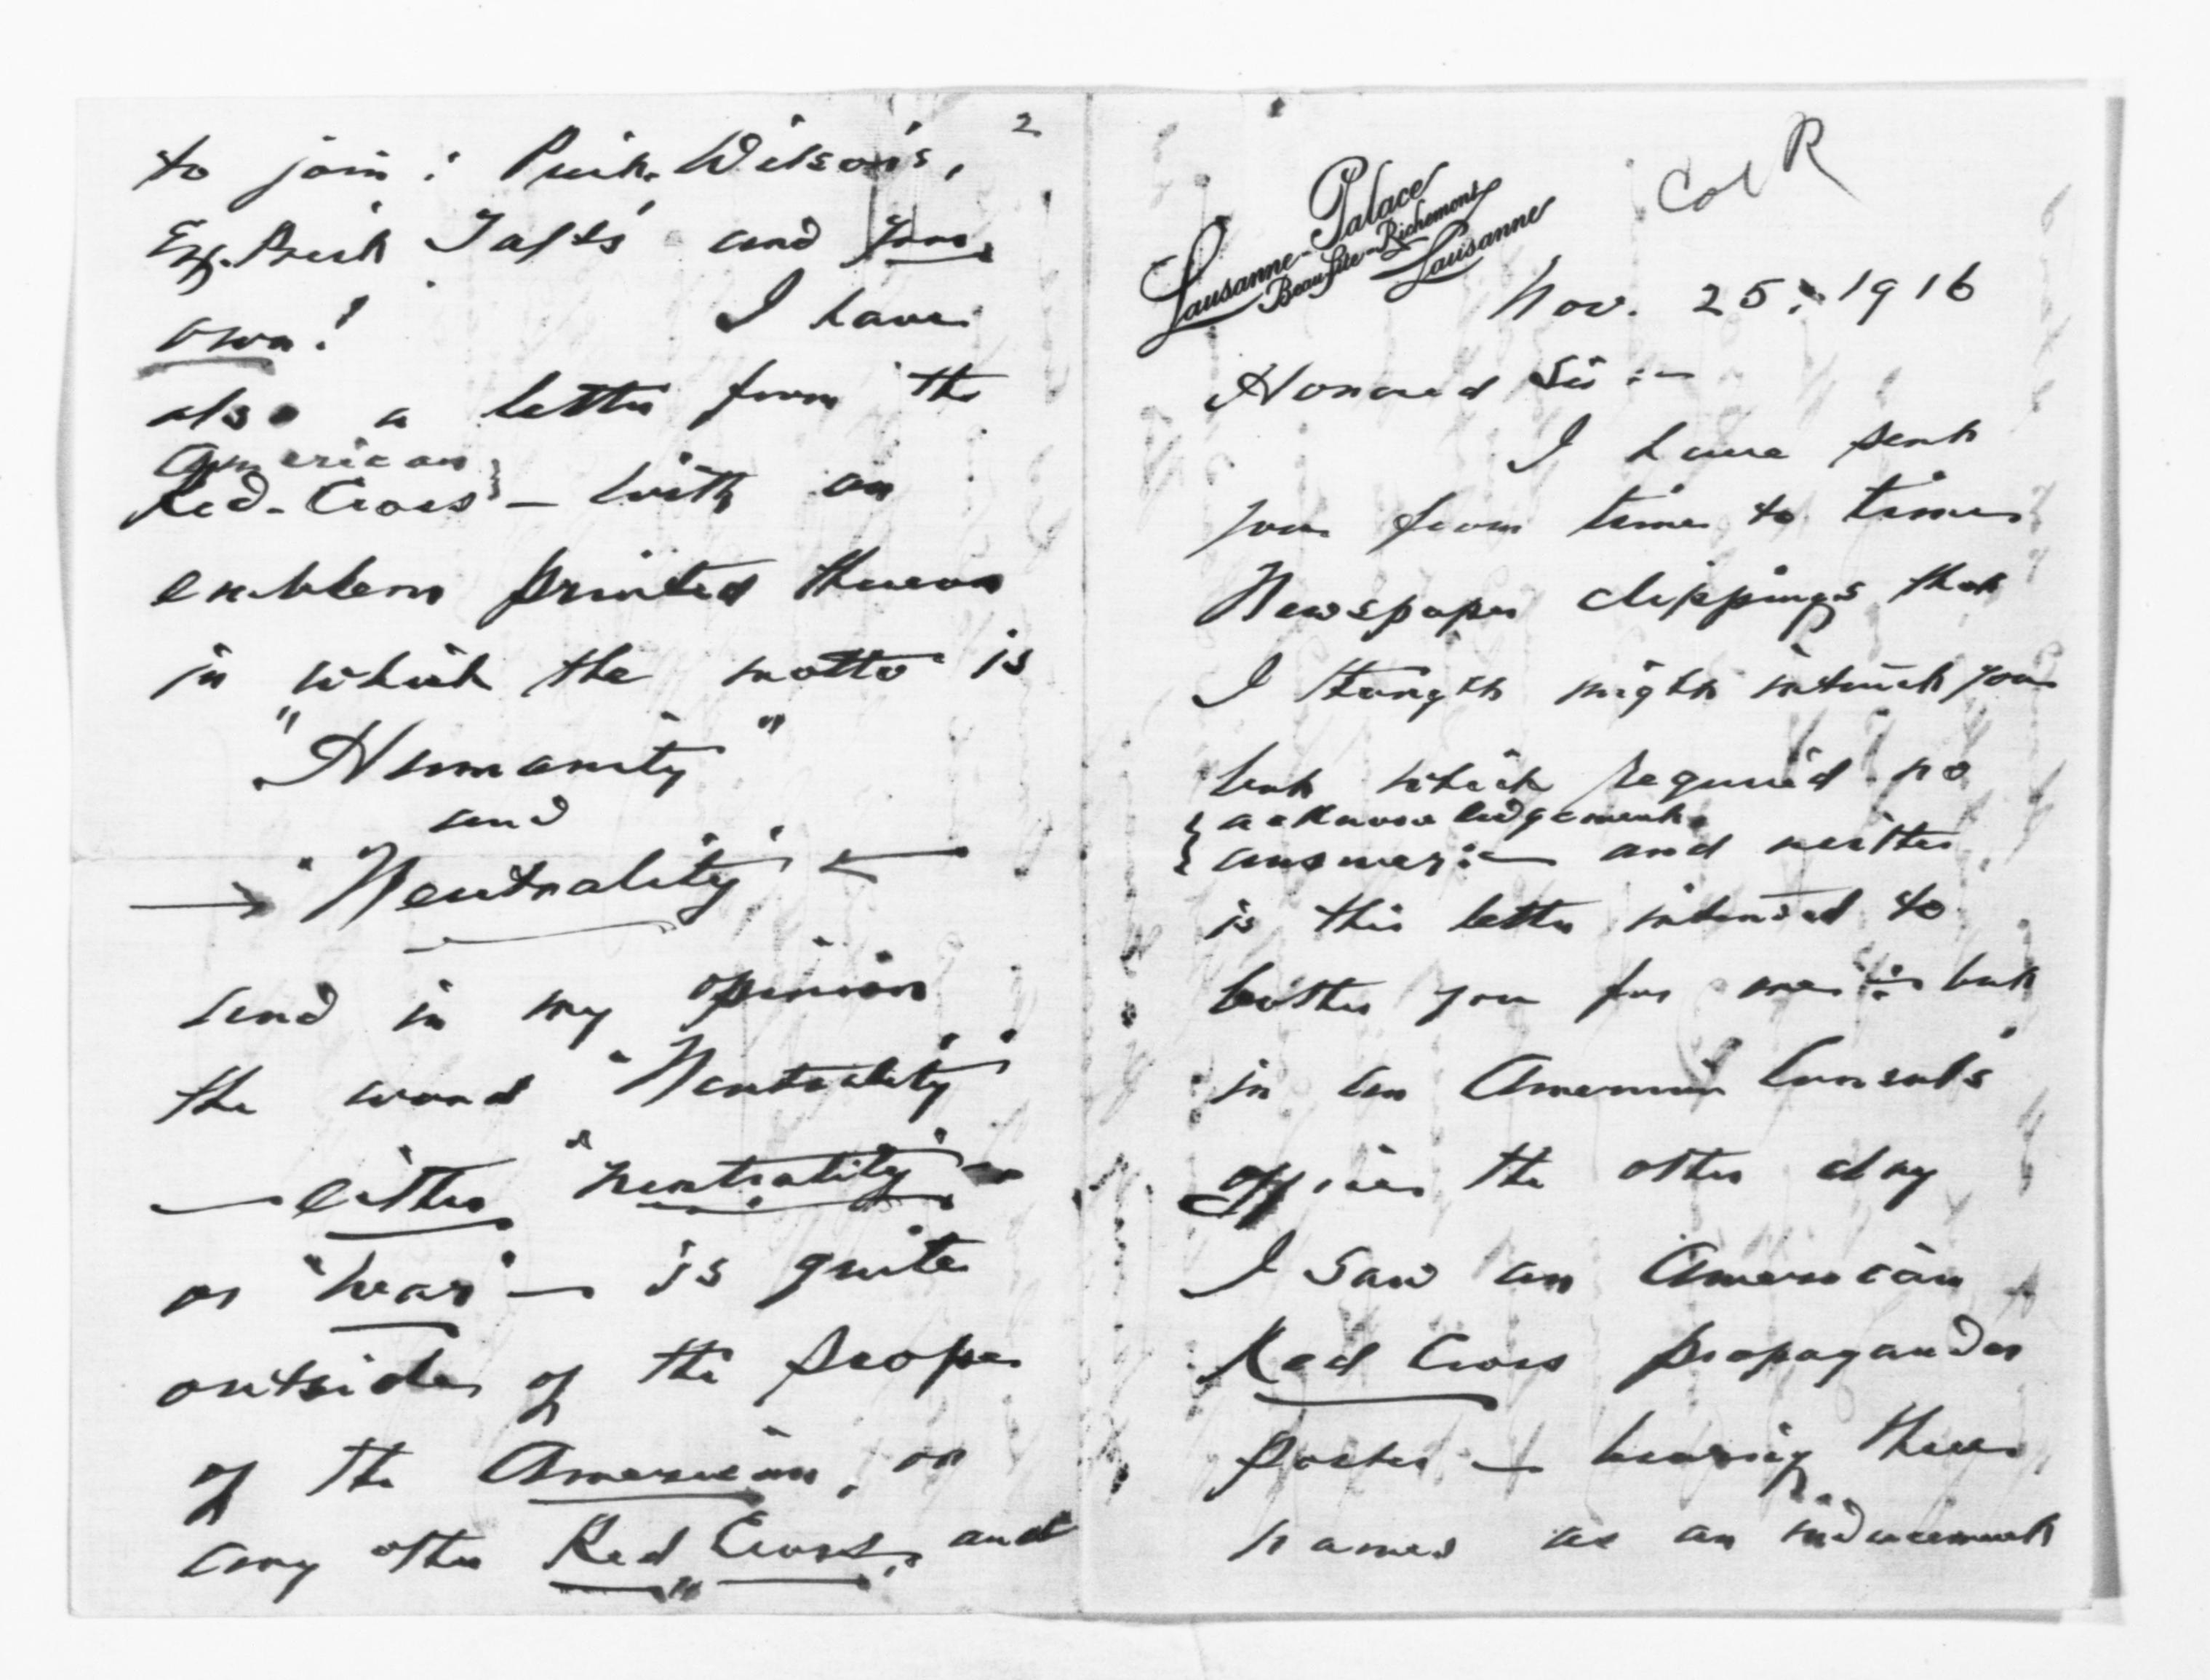 Col R
Lausanne-Palace
Beau-Site-Richemont
Lausanne
Nov. 25, 1916
Honored Sir :-
I have sent
you from time to time
Newspaper clippings that
I thought might interest you
but which required no
{ acknowledgement.
{ answer :- and neither
is this letter intended to
bother you for one :- but
in an American Consul's
office the other day
I saw an American
Red Cross propaganda
poster - bearing three
names as an inducement
2
to join : Presh. Wilson's,
Ex. Presh Taft's and your
own! I have
also a letter from the
American
Red-Cross - with an
emblem printed thereon
in which the motto is
"Humanity"
and
→ "Neutrality" ←
and in my opinion
the word "Neutrality"
- either "neutrality"
or "war" - is quite
outside of the scope
of the American, or
any other "Red Cross, and